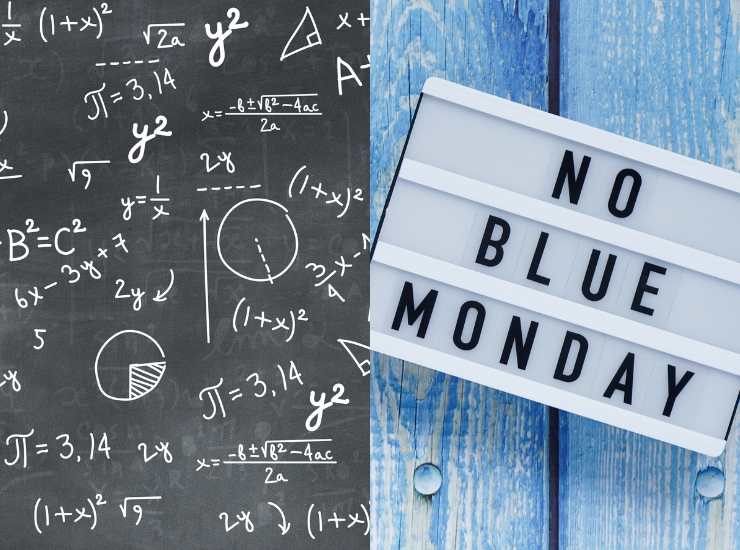 1/x (1+x)²
√2a
y²
x+
A+
π=3,14
x=-b±√b²-4ac/2a
y²
√9
2y
y=1/x
(1+x)²
B²=C²
6x-3y+7
2y
3/4 x-
(1+x)²
5
π=3,14
y²
π=3,14
2y
x=-b±√b²-4ac/2a
(1+x)² √9
2y
(1+x)
NO
BLUE
MONDAY